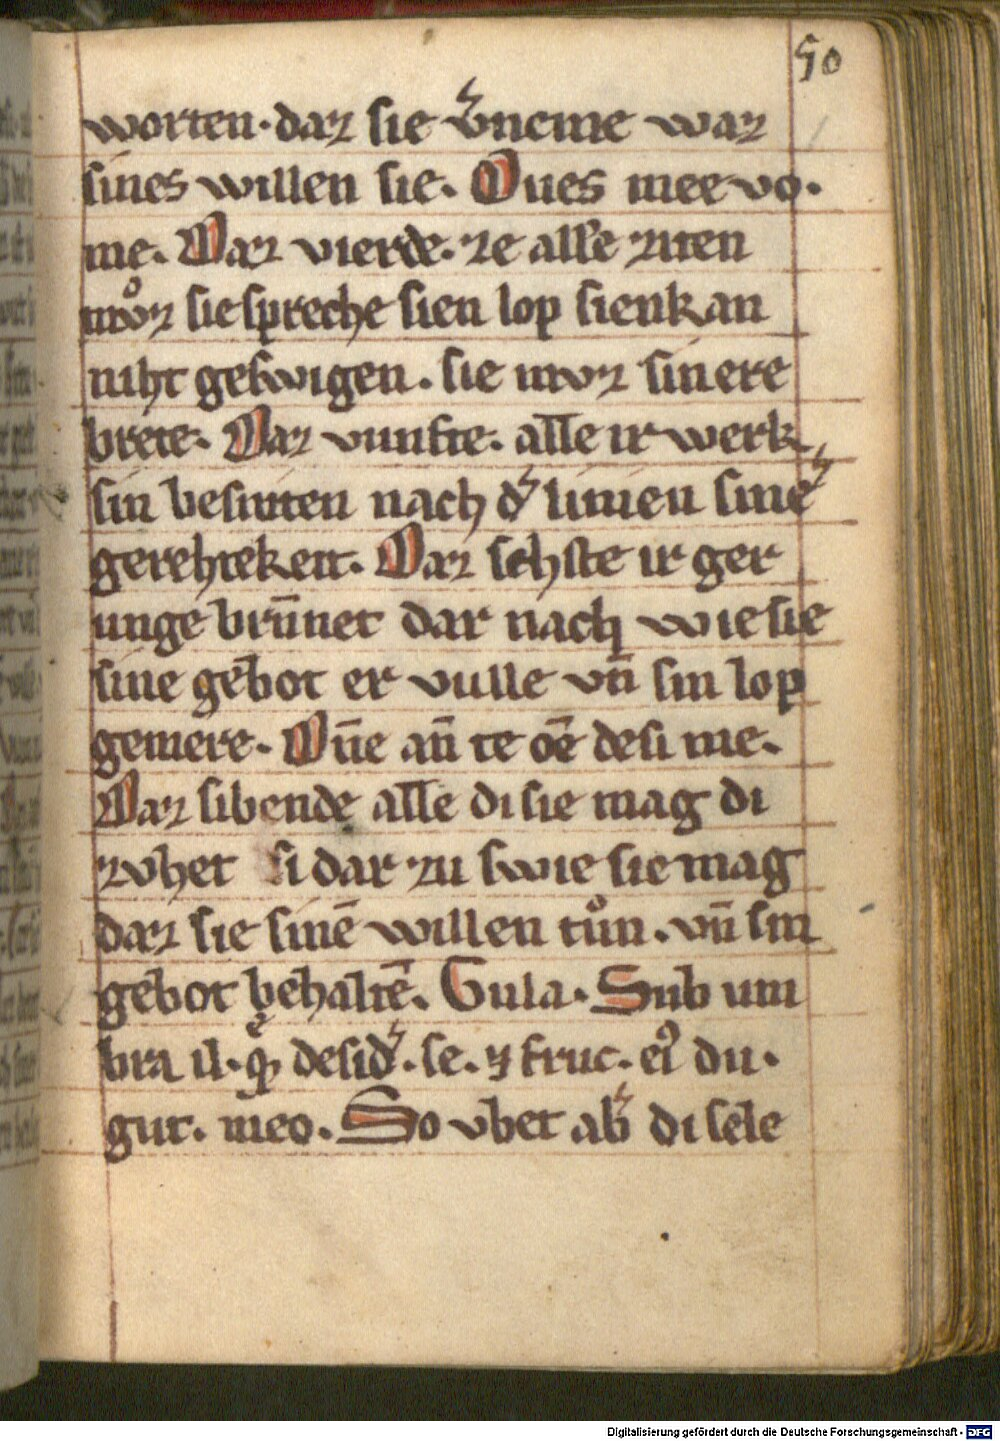 50
worten· daz sie v͛neme waz
sines willen sie. Oues mee vo·
me. Daz vierde· ze alle ziten
mvͦz sie spreche sien lop sienkan
niht geswigen. sie mvoz sin ere
breite. Daz vunfte. alle ir werk
sin besniten nach d͛ linien sine͛
gerehtekeit. Daz sehste ir ger
unge brūnet dar nach wie sie
sine gebot er vulle vn̄ sin lop
gemere. Om̄e an̄ te oē desi me.
Daz sibende alle di sie mag di
zvhet si dar zu swie sie mag
daz sie sinē willen tuͦn. vn̄ sin
gebot behaltē. Gula. Sub um
bra il· desid͛. se. ⁊ fruc. ei᷒ du·
gut. meo. So vbet ab͛ di sele
Digitalisierung gefördert durch die Deutsche Forschungsgemeinschaft - DFG